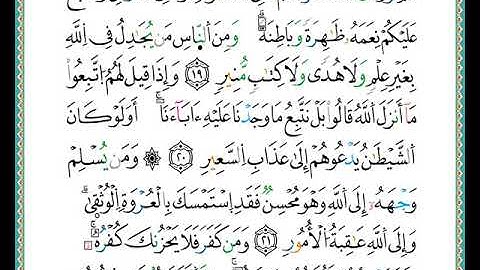 عَلَيْكُمْ نِعَمَهُۥ ظَٰهِرَةً وَبَاطِنَةً وَمِنَ ٱلنَّاسِ مَن يُجَٰدِلُ فِى ٱللَّهِ
بِغَيْرِ عِلْمٍ وَلَا هُدًى وَلَا كِتَٰبٍ مُّنِيرٍ ١٩ وَإِذَا قِيلَ لَهُمُ ٱتَّبِعُوا۟
مَآ أَنزَلَ ٱللَّهُ قَالُوا۟ بَلْ نَتَّبِعُ مَا وَجَدْنَا عَلَيْهِ ءَابَآءَنَآ أَوَلَوْ كَانَ
ٱلشَّيْطَٰنُ يَدْعُوهُمْ إِلَىٰ عَذَابِ ٱلسَّعِيرِ ٢٠ ۞ وَمَن يُسْلِمْ
وَجْهَهُۥٓ إِلَى ٱللَّهِ وَهُوَ مُحْسِنٌ فَقَدِ ٱسْتَمْسَكَ بِٱلْعُرْوَةِ ٱلْوُثْقَىٰ
وَإِلَى ٱللَّهِ عَٰقِبَةُ ٱلْأُمُورِ ٢١ وَمَن كَفَرَ فَلَا يَحْزُنكَ كُفْرُهُۥٓ